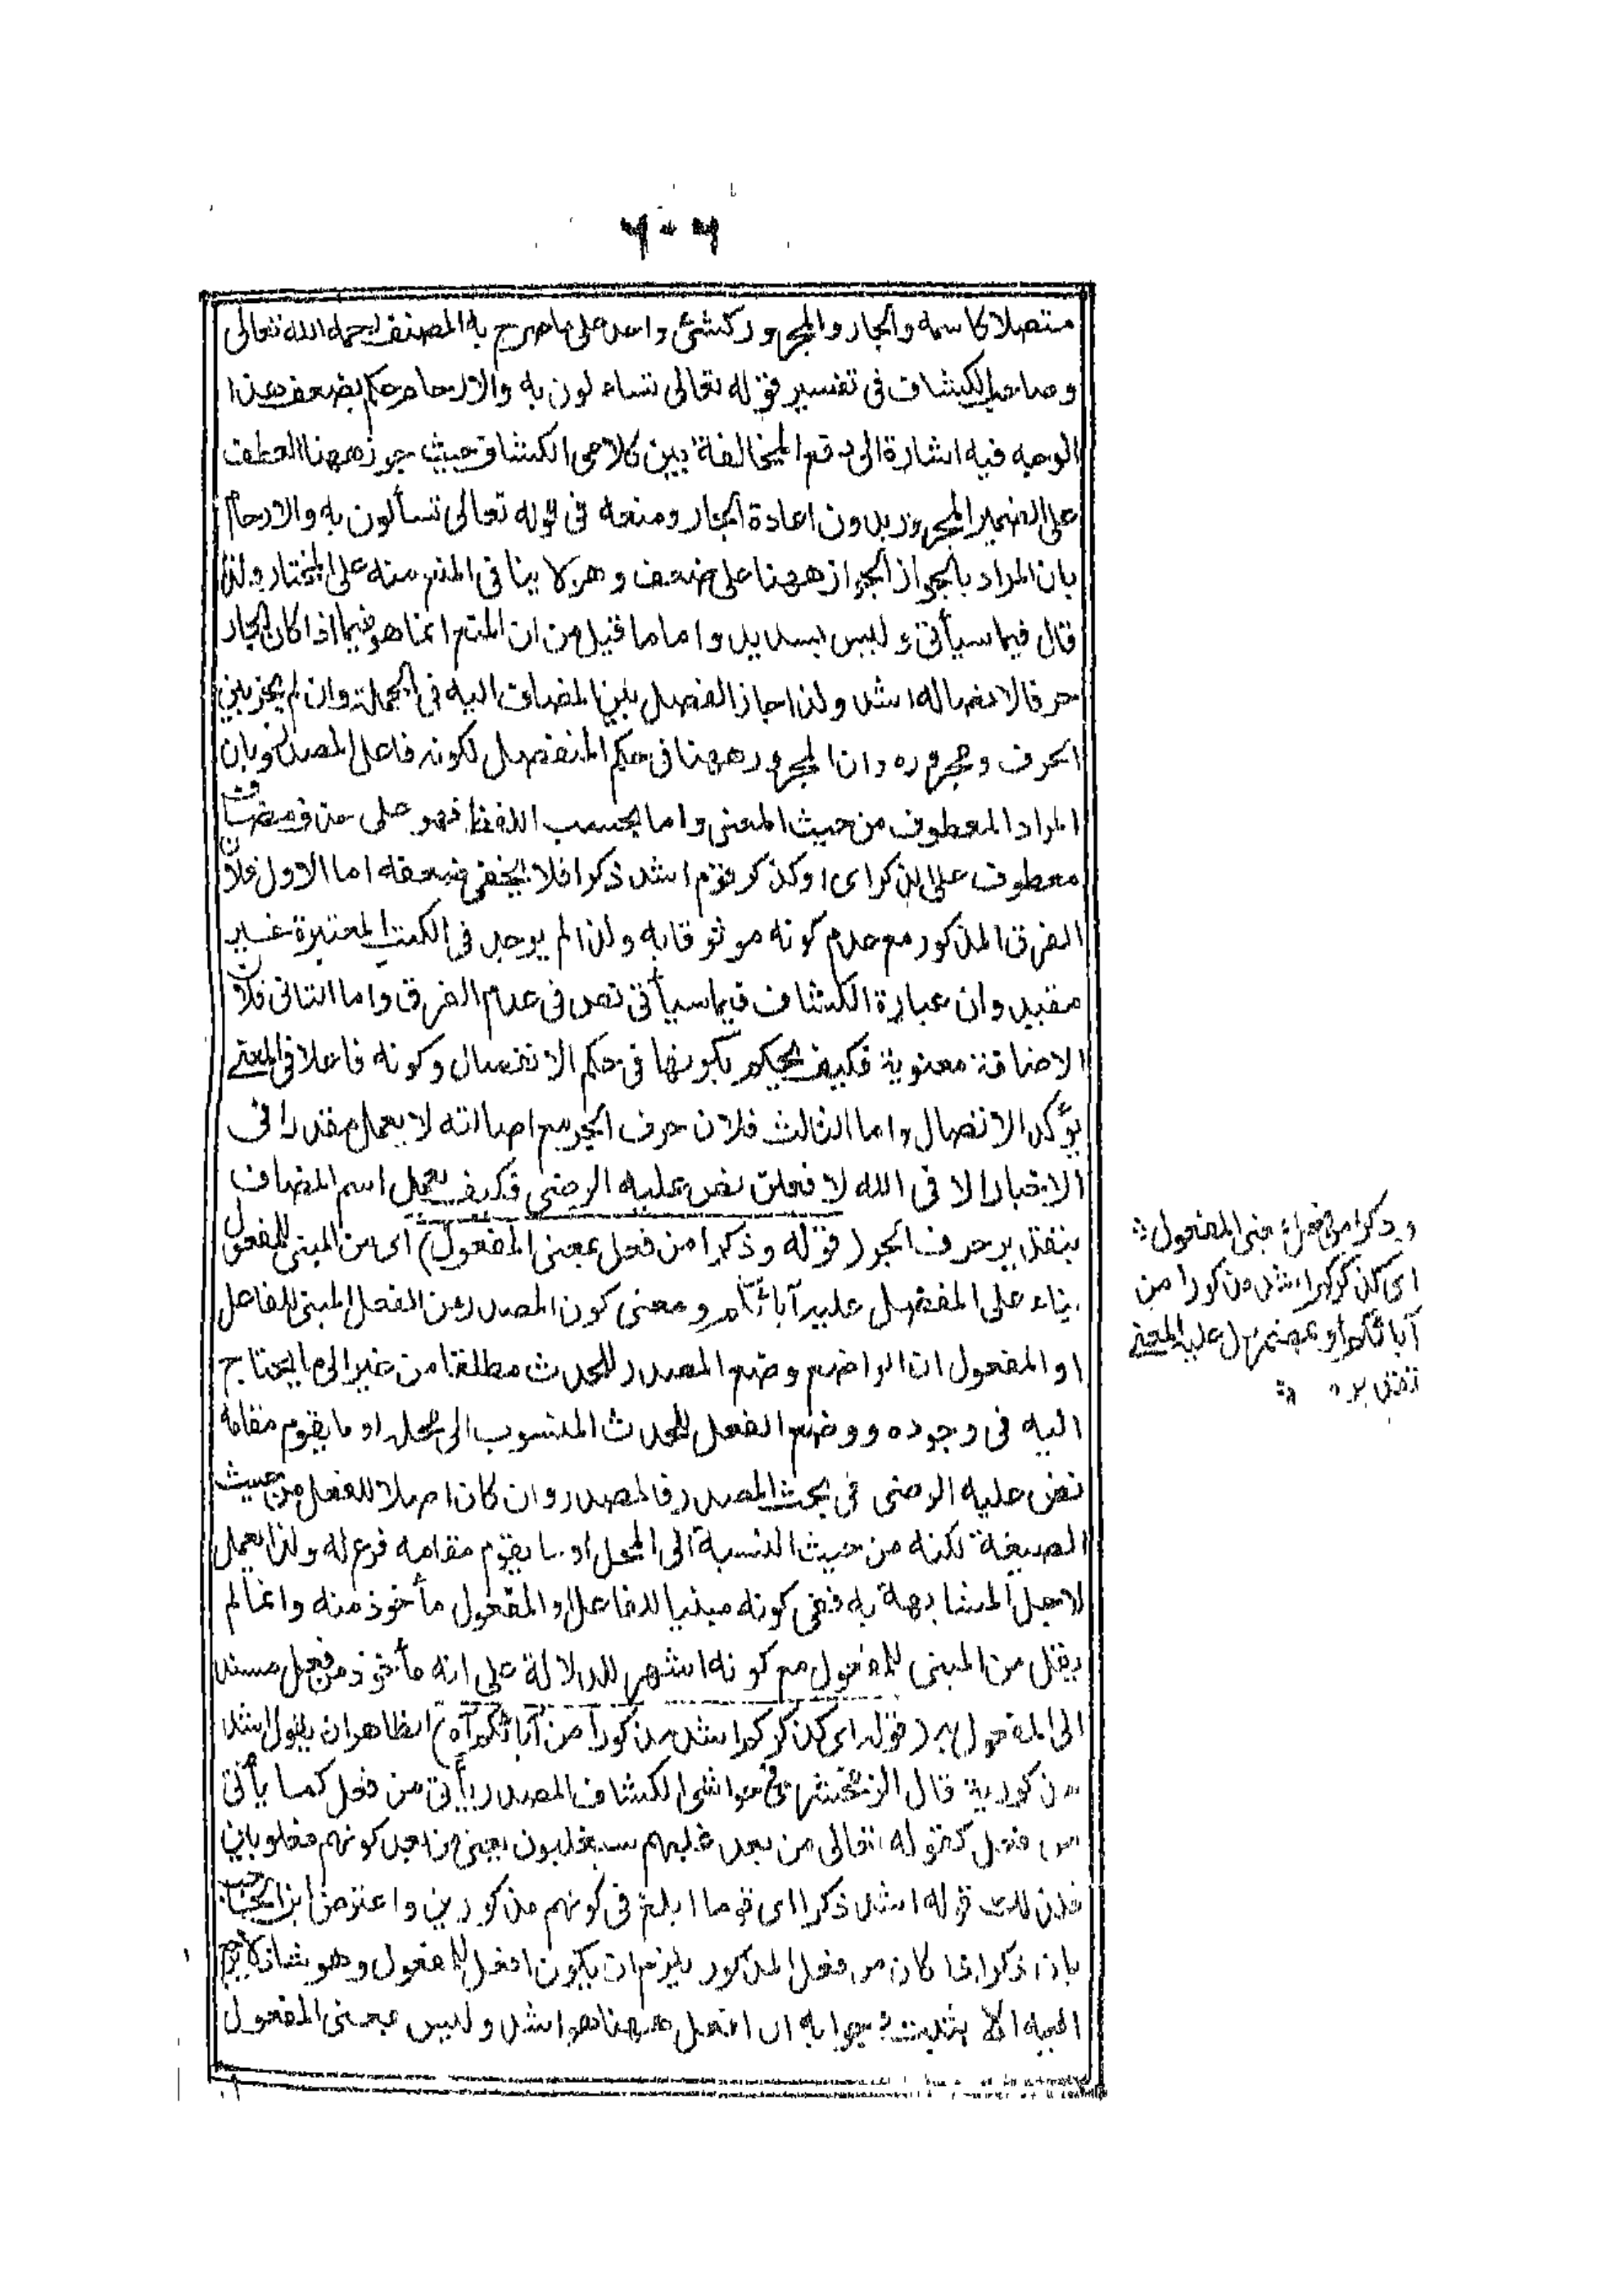 ٦٠٦
متصلا كاسمه والجار والمجرور كشئ واحد على ما صرح به المصنف رحمه الله تعالى
وصاحب الكشاف فى تفسير قوله تعالى تساءلون به والارحام حكم بضعف هذا
الوجه فيه اشارة الى دفع المخالفة بين كلامى الكشاف حيث جوز ههنا العطف
على الضمير المجرور بدون اعادة الجار ومنعه فى قوله تعالى تسألون به والارحام
بان المراد بالجواز الجواز ههنا على ضعف وهو لا ينافى المنع منه على المختار ولذا
قال فيما سيأتى وليس بسديد واما ما قيل من ان المنع انما هو فيما اذا كان الجار
حرفا لاتصاله اشد ولذا جاز الفصل بين المضاف اليه فى الجملة وان لم يجز بين
الحرف ومجروره وان المجرور ههنا فى حكم المنفصل لكونه فاعل المصدر وبان
المراد المعطوف من حيث المعنى واما بحسب اللفظ فهو على حذف مضاف
معطوف على الذكر اى او كذكر قوم اشد ذكرا فلا يخفى ضعفه اما الاول فلان
الفرق المذكور مع عدم كونه موثوقا به ولذا لم يوجد فى الكتب المعتبرة غير
مقيد وان عبارة الكشاف فيما سيأتى نص فى عدم الفرق واما الثانى فلان
الاضافة معنوية فكيف يحكم بكونها فى حكم الانفصال وكونه فاعلا فى المعنى
يؤكد الاتصال واما الثالث فلان حرف الجر مع اصالته لا يعمل مقدرا فى
الاختيار الا فى الله لا فعلن نص عليه الرضى فكيف يعمل اسم المضاف
بتقدير حرف الجر ( قوله وذكرا من فعل بمعنى المفعول ) اى من المبنى للمفعول
بناء على المفضل عليه آبائكم ومعنى كون المصدر من الفعل المبنى للفاعل
او المفعول ان الواضع وضع المصدر للحدث مطلقا من غير الى ما يحتاج
اليه فى وجوده ووضع الفعل للحدث المنسوب الى محل او ما يقوم مقامه
نص عليه الرضى فى بحث المصدر فالمصدر وان كان اصلا للفعل من حيث
الصيغة لكنه من حيث النسبة الى المحل او ما يقوم مقامه فرع له ولذا يعمل
لاجل المشابهة به ففى كونه مبنيا للفاعل او المفعول مأخوذ منه وانما لم
يقل من المبنى للمفعول مع كونه اشهر للدلالة على انه مأخوذ من فعل مسند
الى المفعول به ( قوله اى كذكركم اشد مذكورا من آبائكم آه ) الظاهر ان يقول اشد
مذكورية قال الزمخشرى فى حواشى الكشاف المصدر يأتى من فعل كما يأتى
من فعل كقوله تعالى من بعد غلبهم سيغلبون بمعنى من بعد كونهم مغلوبين
فذلك قوله اشد ذكرا اى قوما ابلغ فى كونهم مذكورين واعترض ابن الحاجب
بان ذكرا اذا كان من فعل المذكور يلزم ان يكون افعل للمفعول وهو شاذ لا يرجع
اليه الا بثبت وجوابه ان افعل ههنا هو اشد وليس بمعنى المفعول
وذكرا من فعل بمعنى المفعول
اى كذكركم اشد مذكورا من
آبائكم او بمضمر دل عليه المعنى
تقديره